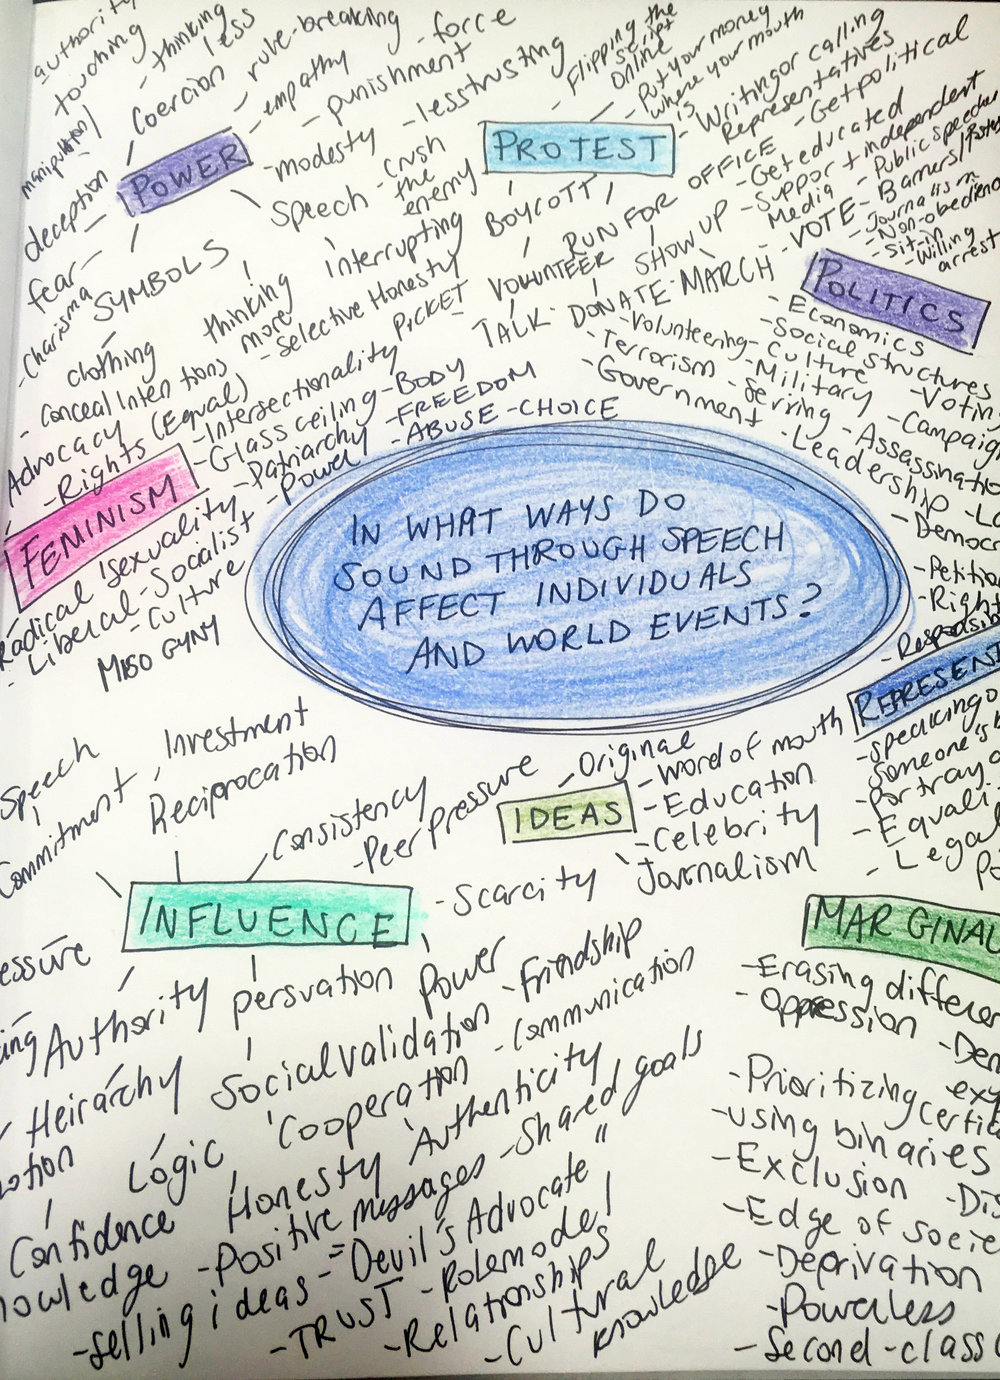 authority
touching
- thinking
less
Coercion
rule-breaking
- force
empathy
- punishment
- lesstrusting
manipulation/
deception
fear
-charisma
POWER
-modesty
speech
- crush
the
enemy
SYMBOLS
clothing
thinking
more
interrupting
- Selective Honesty
- Conceal Intentions
- Flipping the
script
online
- Put your money
where your mouth
is
PROTEST
- Writing or calling
Representatives
- Getpolitical
BOYCOTT
RUN FOR OFFICE
- Get educated
- Support independent
Media
- Public speeches
PICKET
VOLUNTEER
SHOW UP
- VOTE
- Banners/
- Journalism
- Non-obedience
- Sit-in
- Willing
arrest
TALK
- DONATE
- MARCH
POLITICS
- Economics
- Social structures
- Culture
- Voting
- Volunteering
- Military
- Campaign
Terrorism
- Serving
- Assassinatio
- Government
- Leadership
- Democr
- Petition
- Right
- Responsib
Advocacy
- Rights (Equal)
- Intersectionality
- Glass ceiling
- BODY
- Patriarchy
- FREEDOM
- Power
- ABUSE
- CHOICE
FEMINISM
Radical
sexuality
- Liberal
- Socialist
- Culture
MISOGYNY
IN WHAT WAYS DO
SOUND THROUGH SPEECH
AFFECT INDIVIDUALS
AND WORLD EVENTS?
REPRESENT
- speaking o
Someone's b
- portray
- Equali
- Legal
IDEAS
- Original
- word of mouth
- Education
- Celebrity
Journalism
Speech
Investment
Commitment
Reciprocation
Consistency
- Peer pressure
- Scarcity
INFLUENCE
essure
Authority
persvation
Power
- Friendship
Heirarchy
Social validation
- Communication
otion
Logic
Cooperation
Authenticity
Confidence
Honesty
- Shared goals
nowledge
- Positive messages
"
- selling ideas
- Devil's Advocate
- TRUST
- Rolemodel
- Relationships
- Cultural
knowledge
MARGINAL
- Erasing differen
- Oppression
- Den
exp
- Prioritizing certi
- using binaries
- Exclusion
- Dis
- Edge of socie
- Deprivation
- Powerless
- Second-class